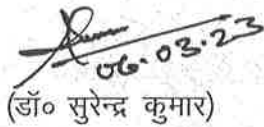 06.03.23
(डॉ० सुरेन्द्र कुमार)